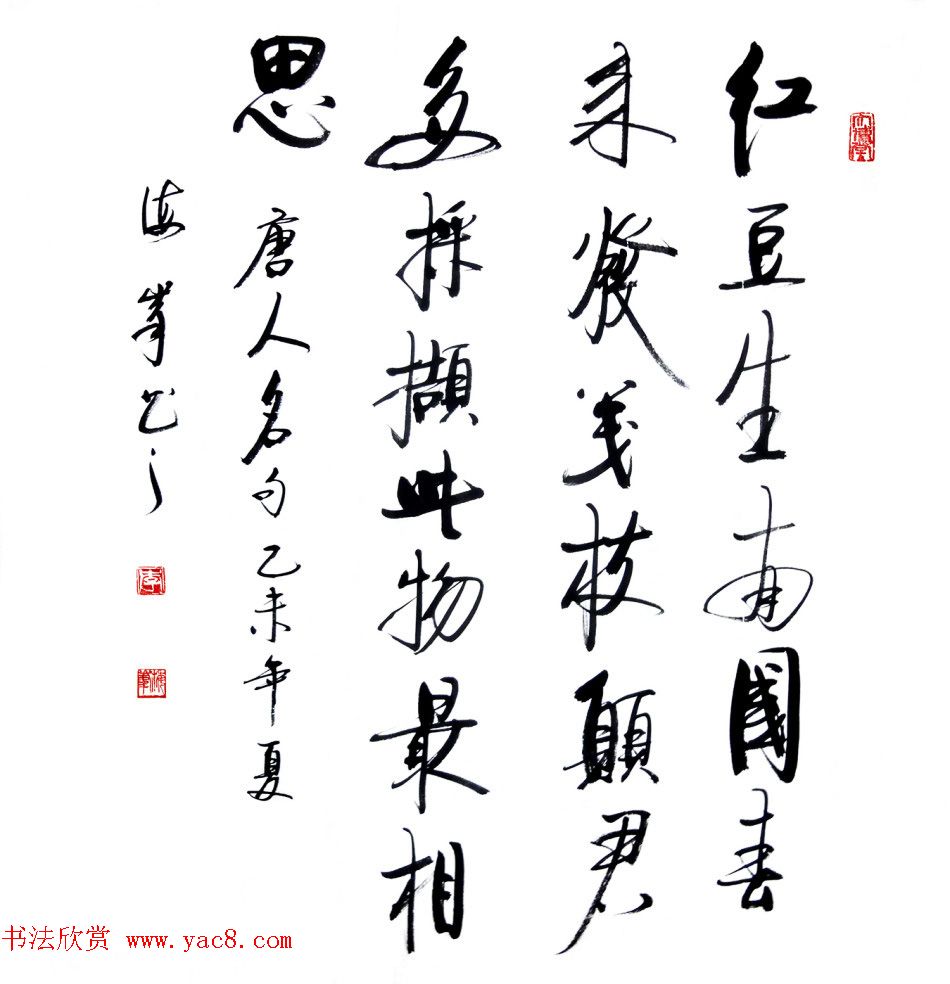 红豆生南國春
来發芰枝願君
多採擷此物最相
思 唐人名句 乙未年夏
海峯书之
书法欣赏 www.yac8.com